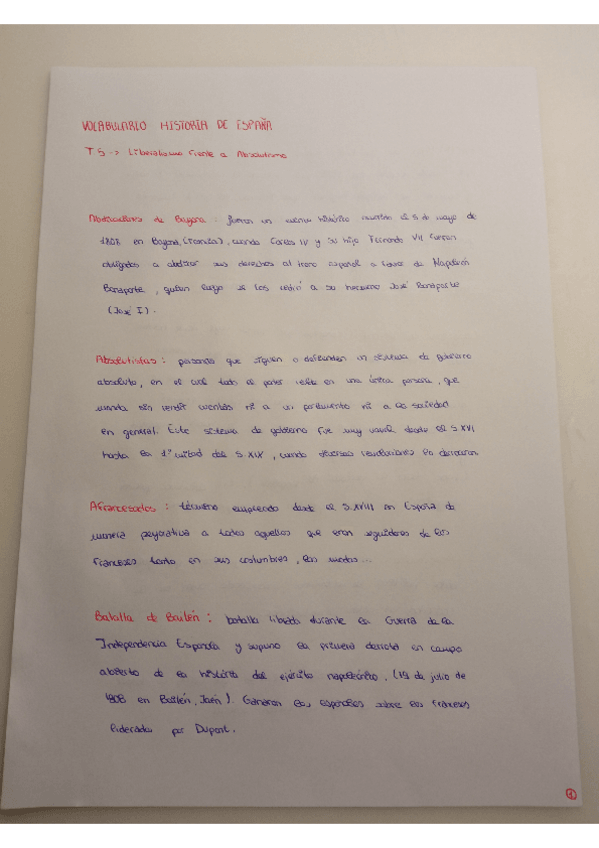 VOCABULARIO HISTORIA DE ESPAÑA
T5 -> Liberalismo frente a Absolutismo
Abdicaciones de Bayona: fueron un evento histórico ocurrido el 5 de mayo de
1808 en Bayona, (Francia), cuando Carlos IV y su hijo Fernando VII fueron
obligados a abdicar sus derechos al trono español a favor de Napoleón
Bonaparte, quien luego se los cedió a su hermano José Bonaparte
(José I).
Absolutistas: personas que siguen o defienden un sistema de gobierno
absoluto, en el cual todo el poder reside en una única persona, que
manda sin rendir cuentas ni a un parlamento ni a la sociedad
en general. Este sistema de gobierno fue muy usual desde el S.XVI
hasta la 1ª mitad del S.XIX, cuando diversas revoluciones lo derrocaron
Afrancesados: término empleado desde el S.XVIII en España de
manera peyorativa a todos aquellos que eran seguidores de los
franceses tanto en sus costumbres, las modas...
Batalla de Bailén: batalla librada durante la Guerra de la
Independencia Española y supuso la primera derrota en campo
abierto de la historia del ejército napoleónico. (19 de julio de
1808 en Bailén, Jaén). Ganaron los españoles sobre los franceses
liderados por Dupont.
1